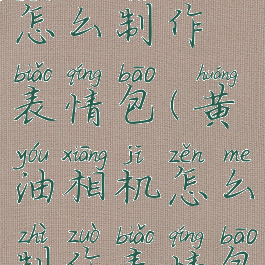 怎么制作
biǎo qíng bāo huáng
表情包(黄
yóu xiāng jī zěn me
油相机怎么
zhì zuò biǎo qíng bāo
制作表情包